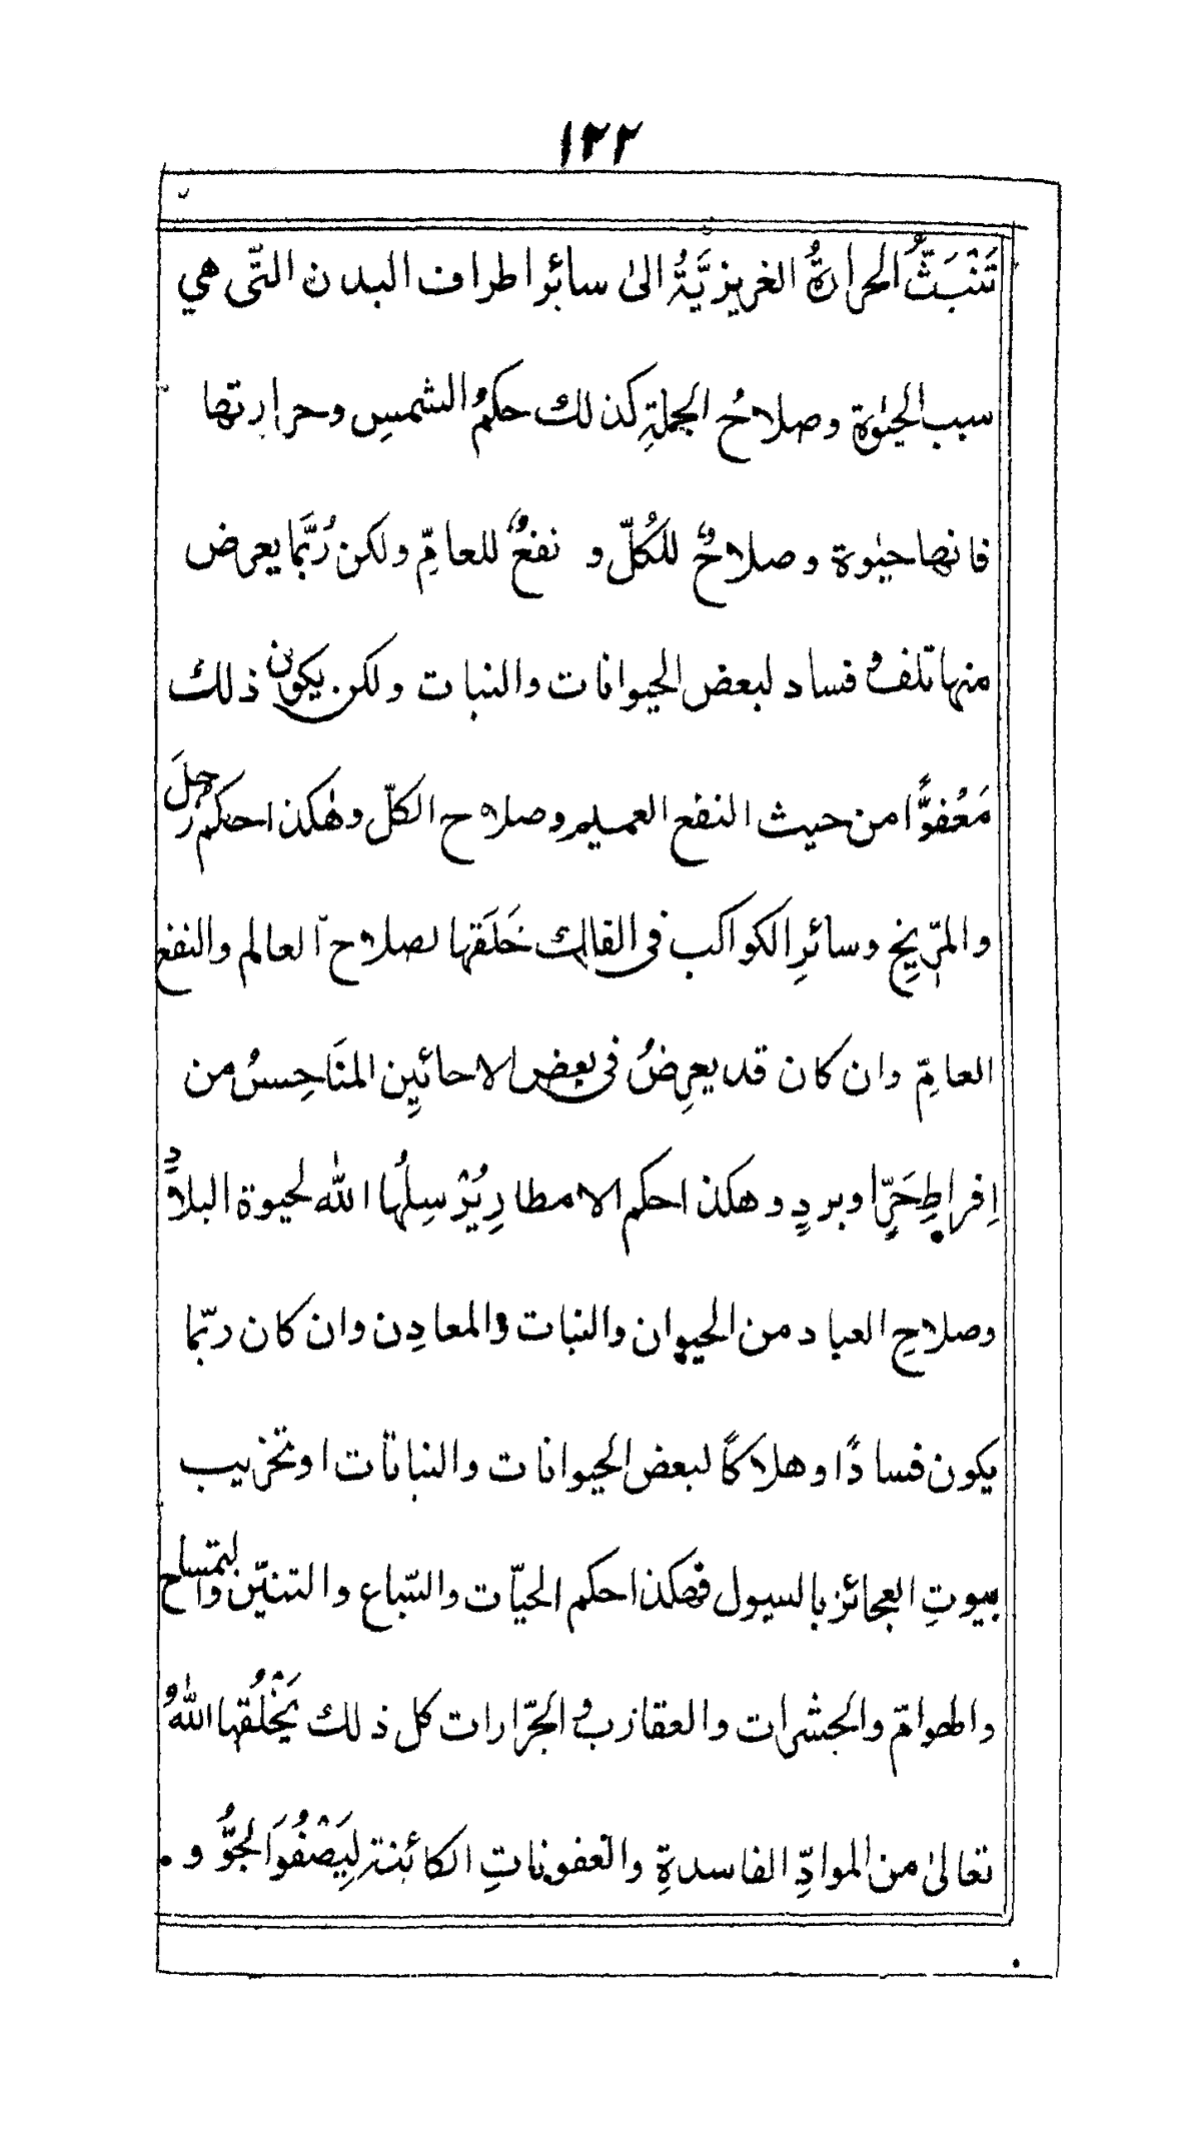 ١٢٢
تَنْبَثُّ الحرارةُ الغريزيَّةُ الىٰ سائر اطراف البدن التّى هي
سبب الحيٰوة وصلاحُ الجملةِ كذلك حكمُ الشمسِ وحرارتها
فانها حيٰوة وصلاحٌ للكُلّ و نفعٌ للعامِّ ولكن رُبَّما يعرض
منها تلفٌ و فساد لبعض الحيوانات والنبات ولكن يكون ذلك
مَعْفوًّا من حيث النفع العميم وصلاح الكلّ وهٰكذا حكم زحلَ
والمرّيخِ وسائرِ الكواكب فى الفلك خَلَقها لصلاح العالم والنفع
العامِّ وان كان قد يعرِضُ فى بعض الاحائينِ المنَاحِسُ من
اِفراطِ حَرٍّ اوبردٍ وهكذا حكم الامطارِ يُرْسِلُها الله لحيوة البلادِ
وصلاحِ العباد من الحيوان والنبات والمعادِن وان كان ربّما
يكون فسادًا وهلاكًا لبعض الحيوانات والنباتات اوتخريب
بيوتِ العجائز بالسيول فهكذا حكم الحيّات والسّباع والتنيّن والتمساح
والهوامّ والحشرات والعقارب و الجرّارات كل ذلك يَخْلُقها اللهُ
تعالىٰ من الموادِّ الفاسدةِ والعفوناتِ الكائنة لِيَصْفُوَ الجوُّ و